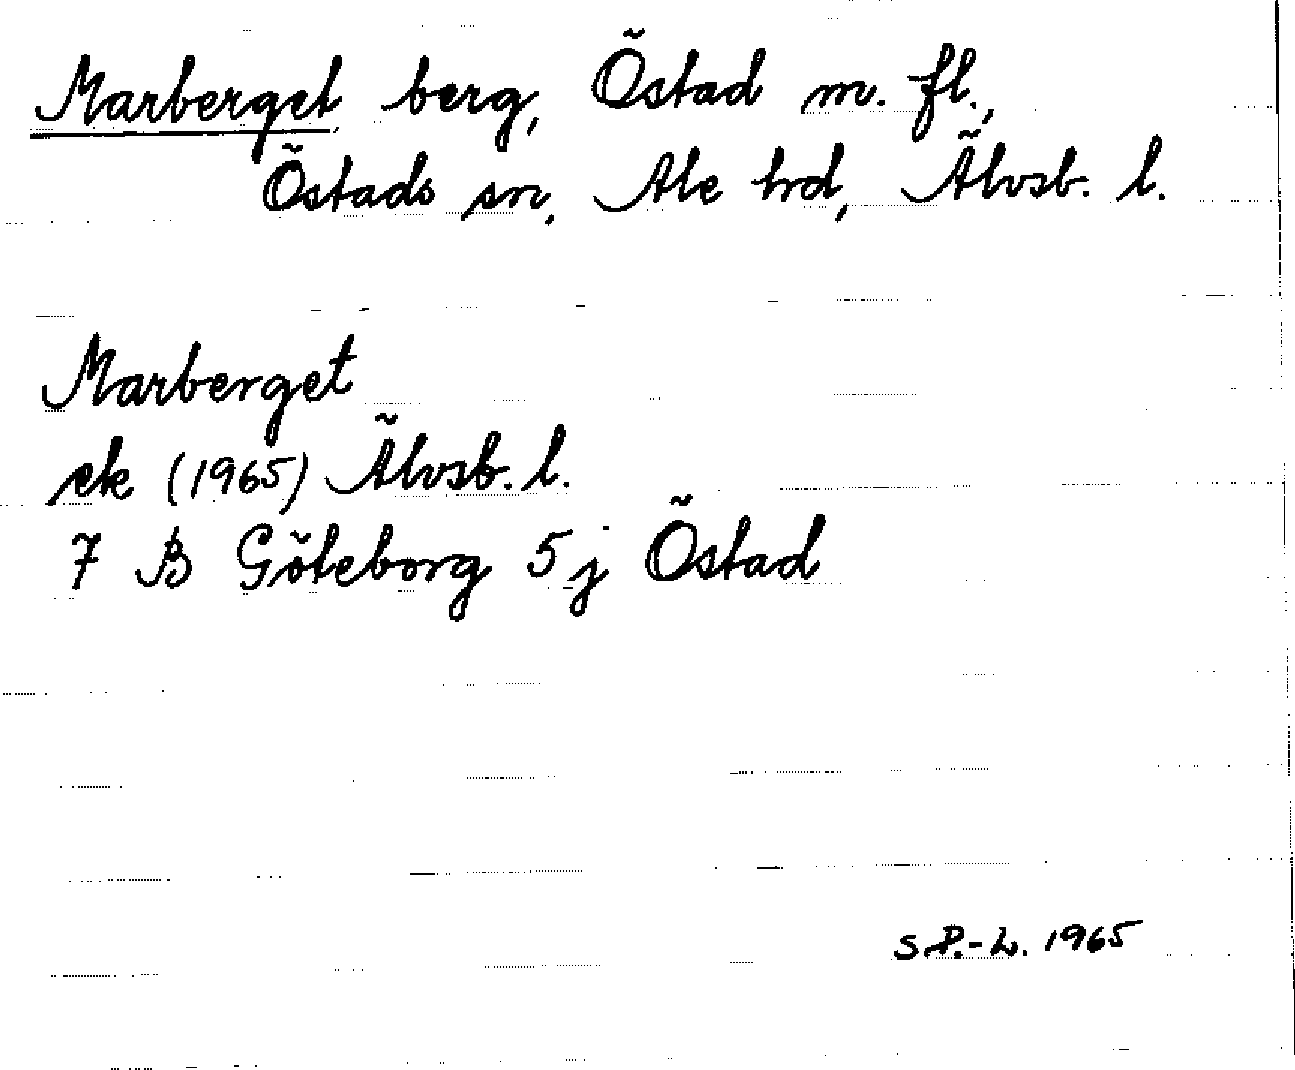 Marberget berg, Östad m. fl.,
Östads sn, Ale hd, Älvsb. l.
Marberget
ek (1965) Älvsb. l.
7 B Göteborg 5 j Östad
S P.-L. 1965